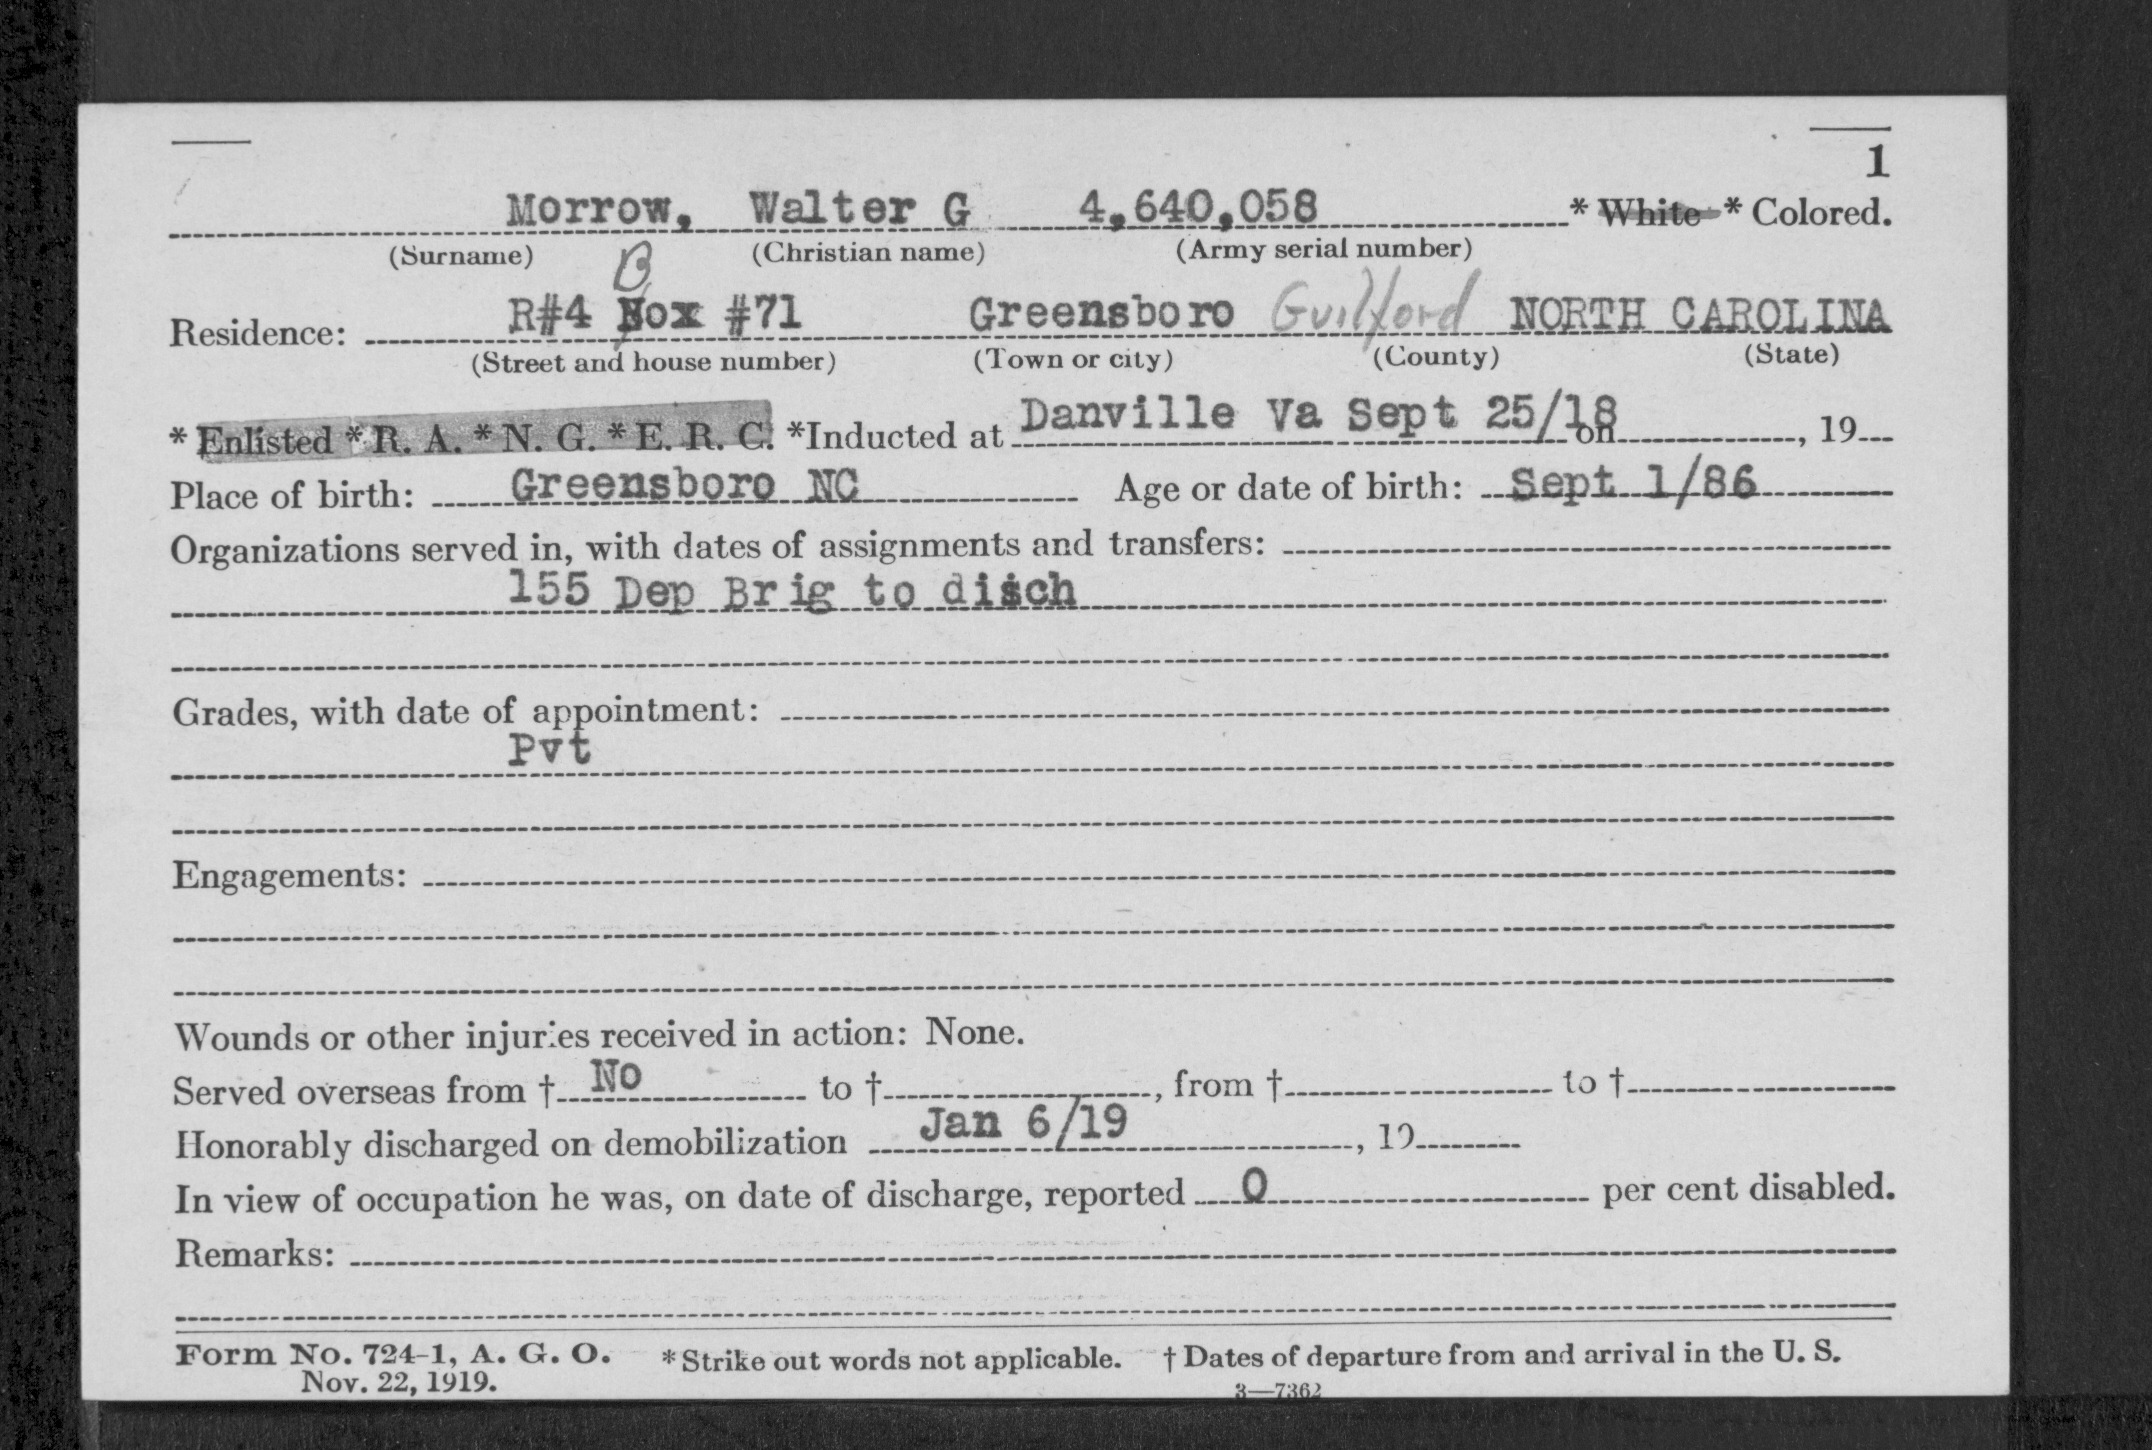 1
Morrow, Walter G 4,640,058 * White * Colored.
(Surname) (Christian name) (Army serial number)
B
Residence: R#4 Nox #71 Greensboro Guilford NORTH CAROLINA
(Street and house number) (Town or city) (County) (State)
* Enlisted * R. A. * N. G. * E. R. C. *Inducted at Danville Va Sept 25/18 on , 19
Place of birth: Greensboro NC Age or date of birth: Sept 1/86
Organizations served in, with dates of assignments and transfers:
155 Dep Brig to disch
Grades, with date of appointment:
Pvt
Engagements:
Wounds or other injuries received in action: None.
Served overseas from † No to † , from † to †
Honorably discharged on demobilization Jan 6/19 , 19
In view of occupation he was, on date of discharge, reported 0 per cent disabled.
Remarks:
Form No. 724-1, A. G. O. * Strike out words not applicable. † Dates of departure from and arrival in the U. S.
Nov. 22, 1919. 3—7362